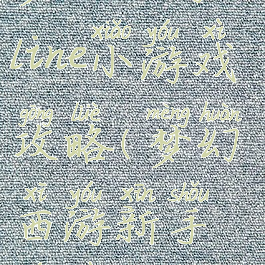 xiǎo yóu xì
line小游戏
gōng lüè mèng huàn
攻略(梦幻
xī yóu xīn shǒu
西游新手